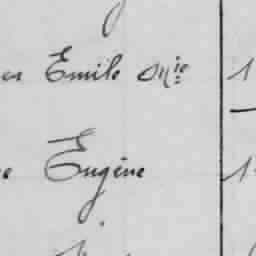 Emile Mie 1
Eugène 1